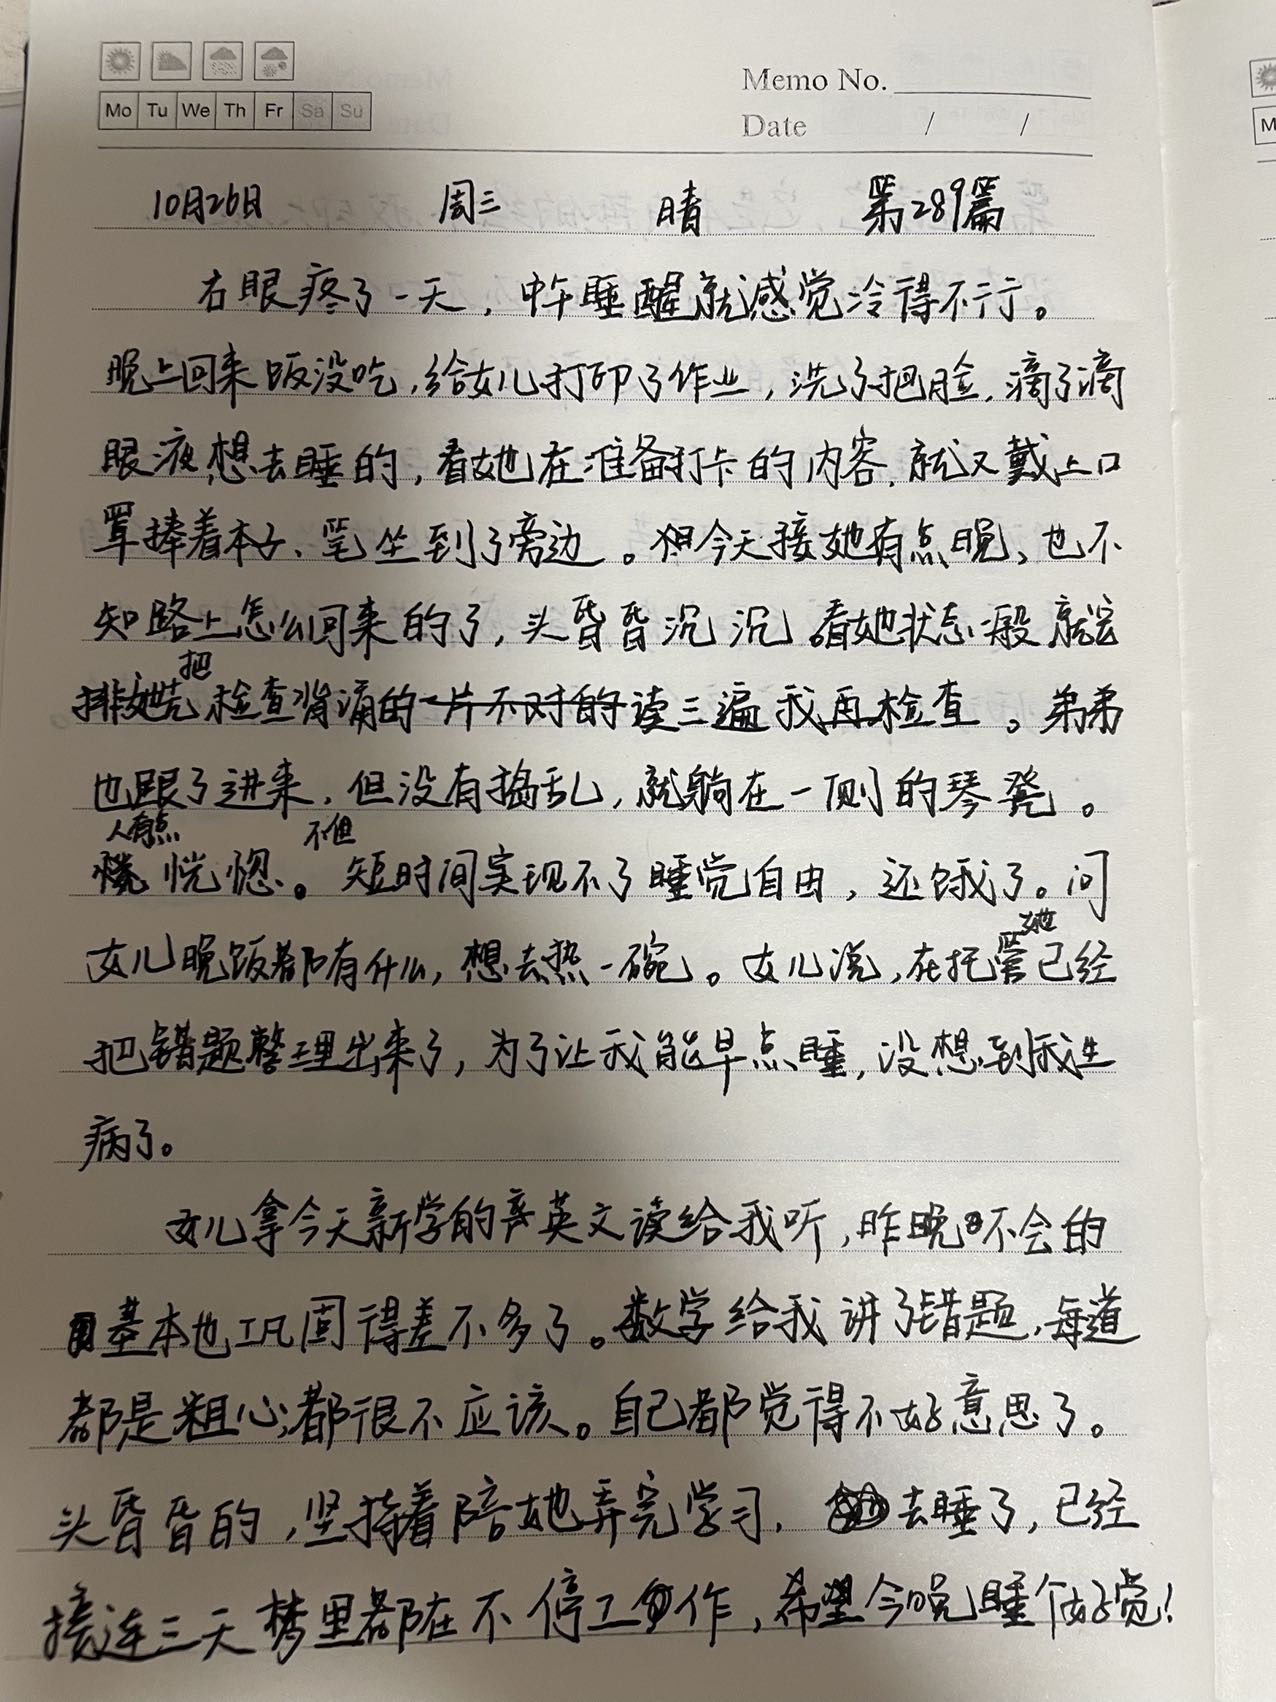 Mo Tu We Th Fr Sa Su
Memo No.
Date / /
10月26日 周三 晴 第289篇
右眼疼了一天，中午睡醒就感觉冷得不行。
晚上回来饭没吃，给女儿打印了作业，洗了把脸，滴了滴
眼液想去睡的，看她在准备打卡的内容，就又戴上口
罩捧着本子、笔坐到了旁边。但今天接她有点晚，也不
知路上怎么回来的了，头昏昏沉沉。看她状态一般就安
排她先把检查背滴的一片不对的读三遍我再检查。弟弟
也跟了进来，但没有捣乱，就躺在一侧的琴凳。
人有点恍惚。不但短时间实现不了睡觉自由，还饿了。问
女儿晚饭都有什么，想去热一碗。女儿说，在托管她已经
把错题整理出来了，为了让我能早点睡，没想到我生
病了。
女儿拿今天新学的英文读给我听，昨晚不会的
基本也巩固得差不多了。数学给我讲了错题，每道
都是粗心，都很不应该。自己都觉得不好意思了。
头昏昏的，坚持着陪她弄完学习，去睡了，已经
接连三天梦里都在不停工作，希望今晚睡个好觉！